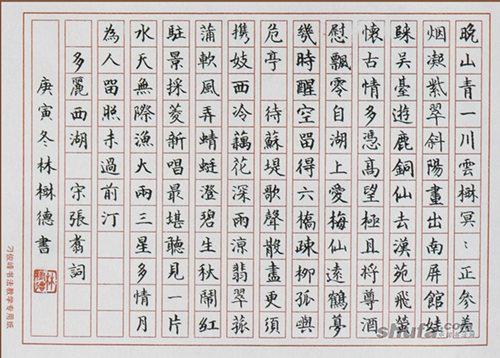 晚山青一川雲樹冥〻正參差
烟凝紫翠斜陽畫出南屏館娃
歸吳臺遊鹿銅仙去漢苑飛螢
懷古情多憑高望極且將尊酒
慰飄零自湖上愛梅仙遠鶴夢
幾時醒空留得六橋疎柳孤嶼
危亭 待蘇堤歌聲散盡更須
携妓西泠藕花深雨涼翡翠菰
蒲軟風弄蜻蜓澄碧生秋鬧紅
駐景採菱新唱最堪聽見一片
水天無際漁火兩三星多情月
為人留照未過前汀
多麗西湖 宋張翥詞
庚寅冬林樹德書
刁俊峰书法教学专用纸
shufa.com